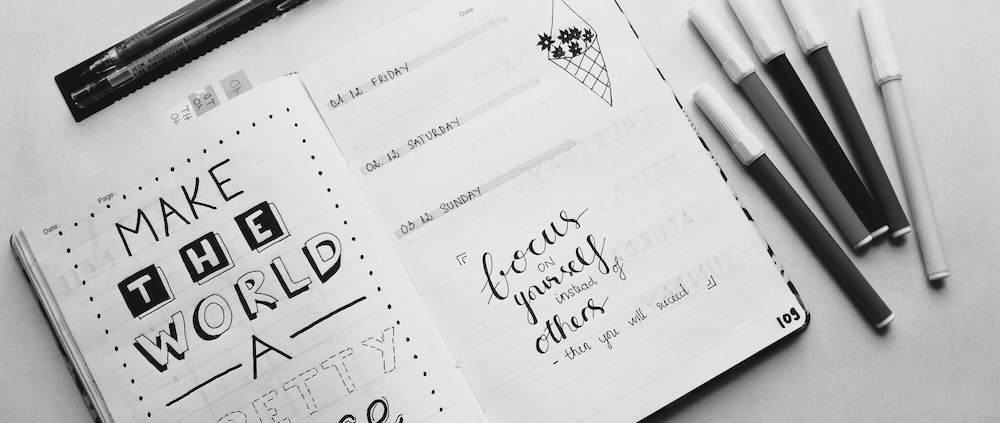 Date:
Page:
MAKE
THE
WORLD
A
RETTY
Date:
01.12 FRIDAY
02.12 SATURDAY
03.12 SUNDAY
focus
on
yourself
instead of
others
- then you will succeed
109